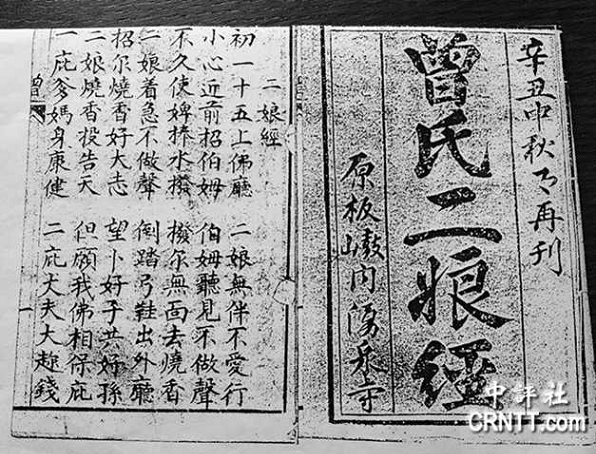 辛丑中秋月再刊
曾氏二娘經
原板內湧泉寺
二娘經
初一十五上佛廳 二娘無伴不愛行
小心近前招伯姆 伯姆聽見不做聲
不久使婢捧水撥 撥尔無面去燒香
二娘着急不做聲 倒踏弓鞋出外廳
招尔燒香好大志 望卜好子共好孫
二娘燒香投告天 但願我佛相保庇
一庇爹媽身康健 二庇丈夫大趁錢
中評社
CRNTT.com